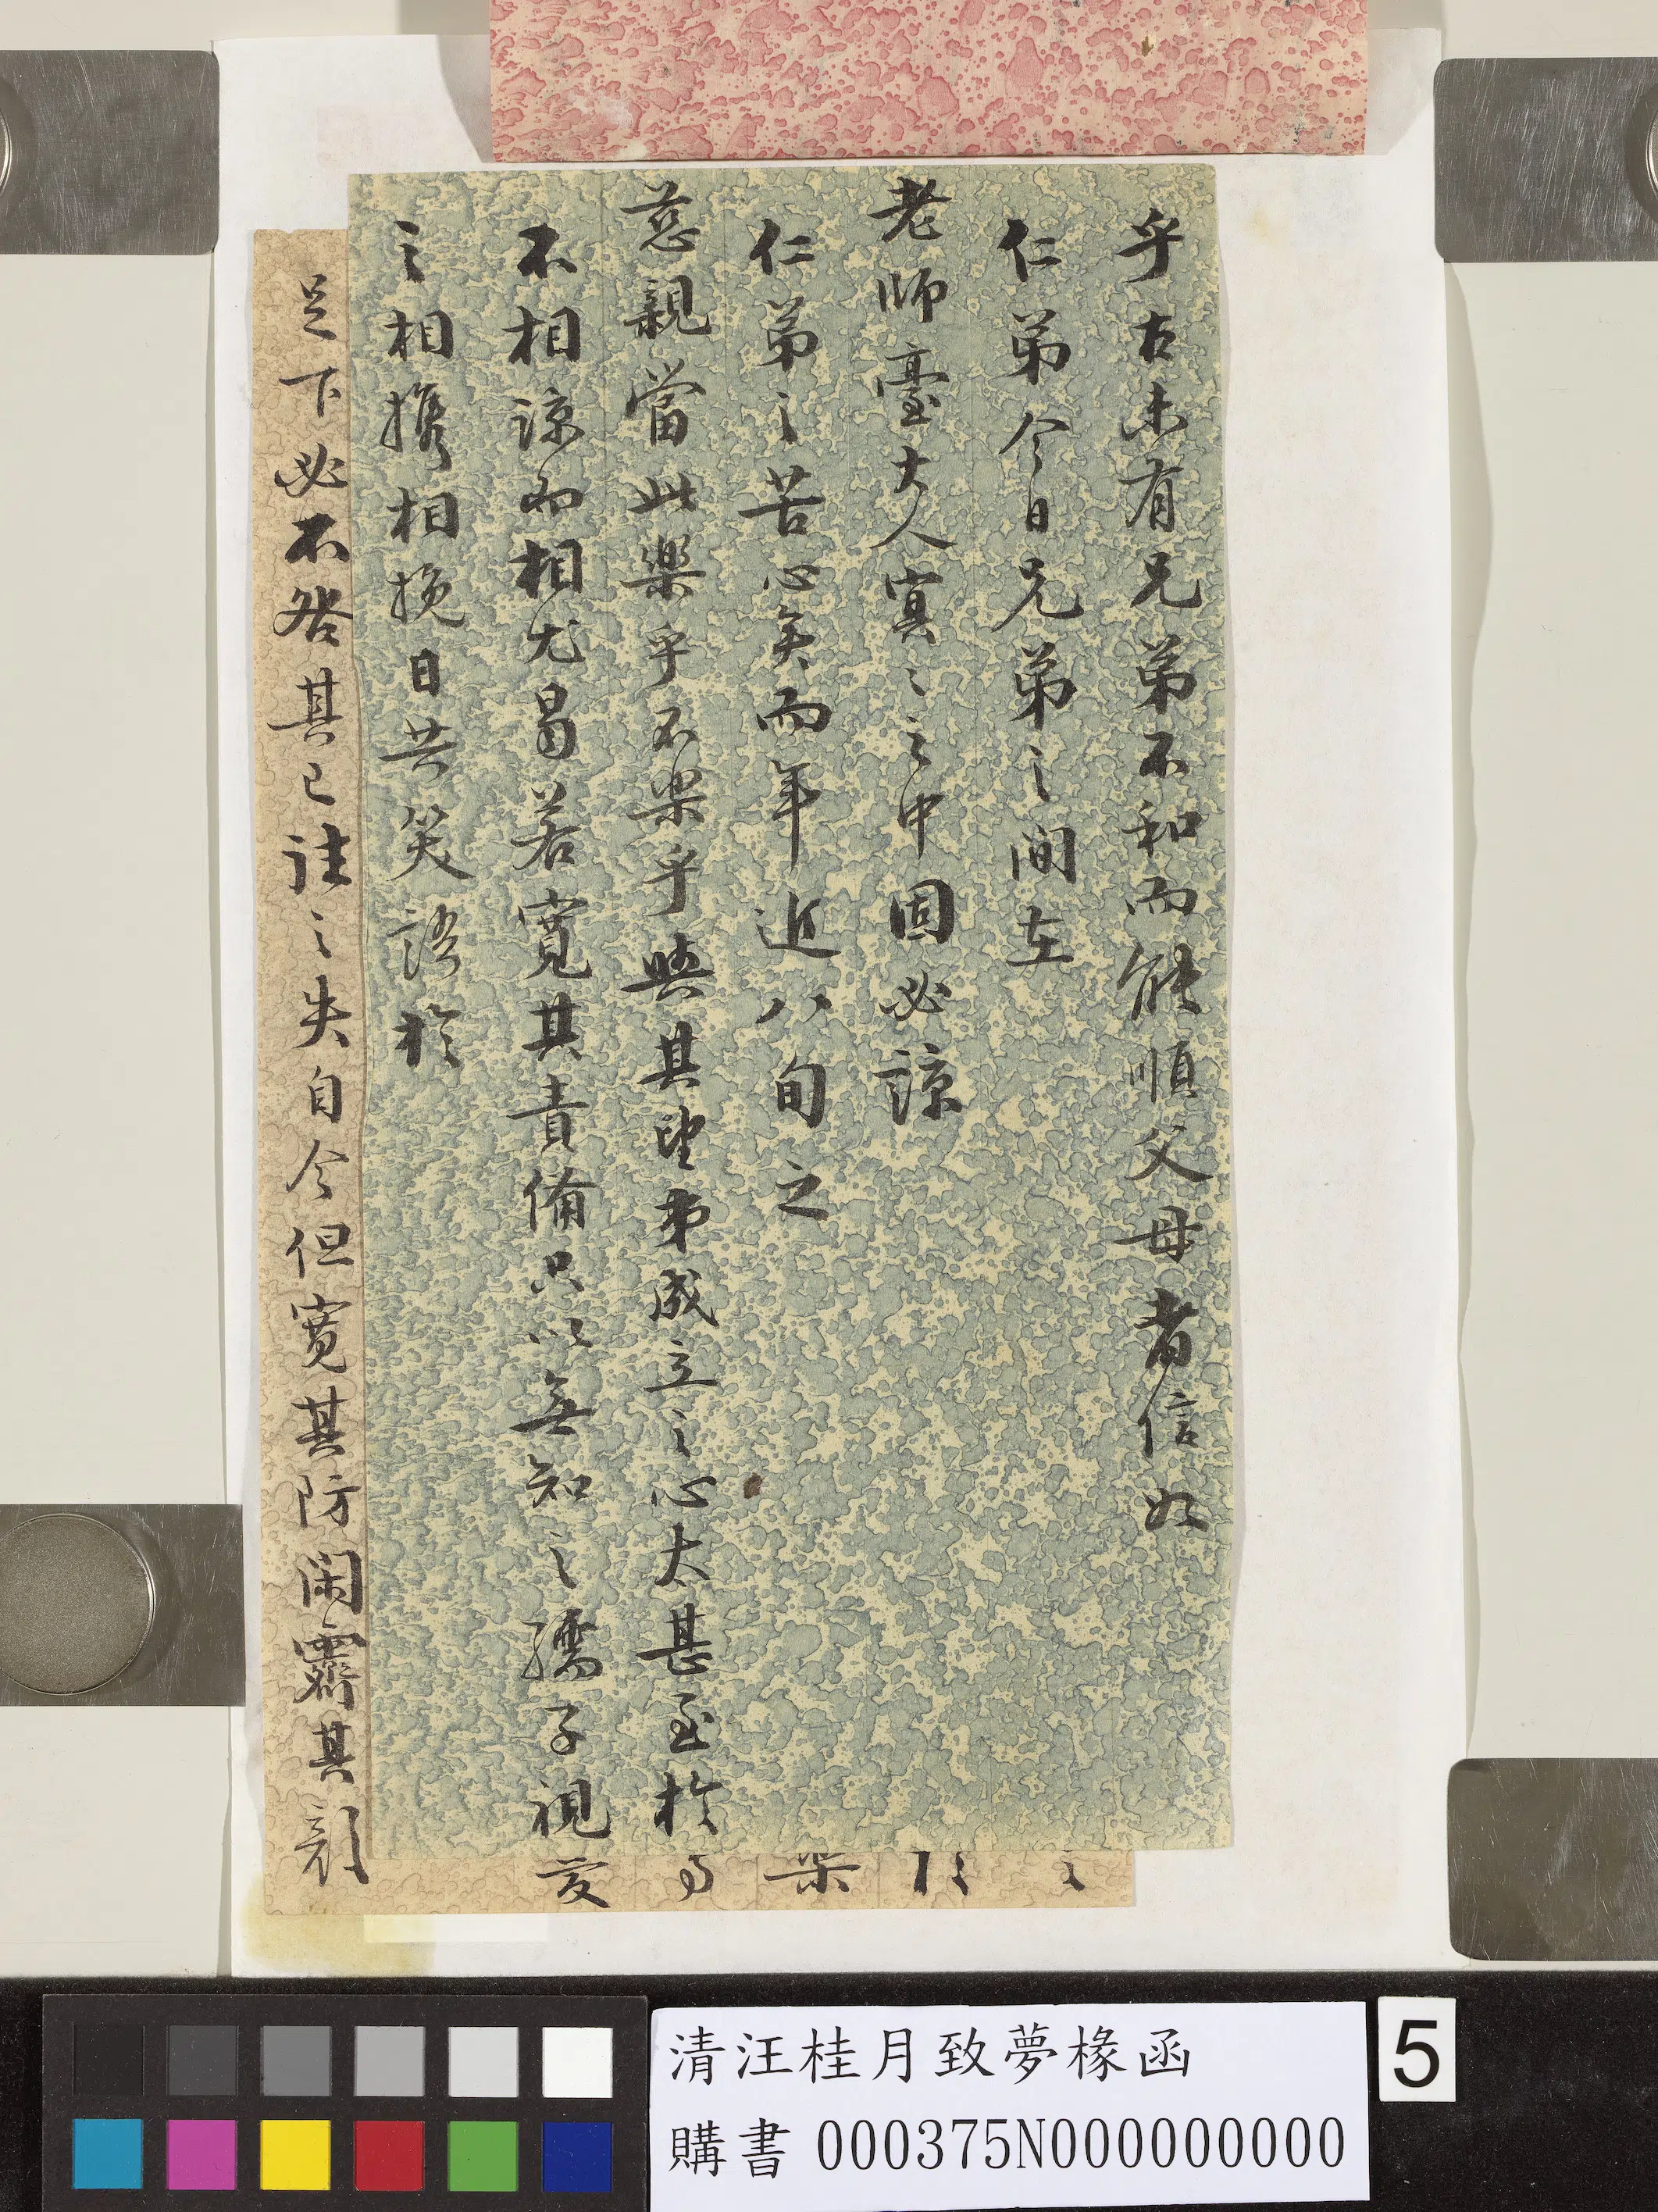 乎古未有兄弟不和而能順父母者信如
仁弟今日兄弟之間在
老師臺大人冥之之中固必諒
仁弟之苦心矣而年近八旬之
慈親當此樂乎不樂乎與其望弟成立之心太甚至於
不相諒而相尤曷若寬其責備只以無知之孺子視
之相攜相挽日共笑語於
足下必不咎其已往之失自今但寬其防閑霽其顏
樂
爰
清汪桂月致夢椽函
購書 000375N000000000
5